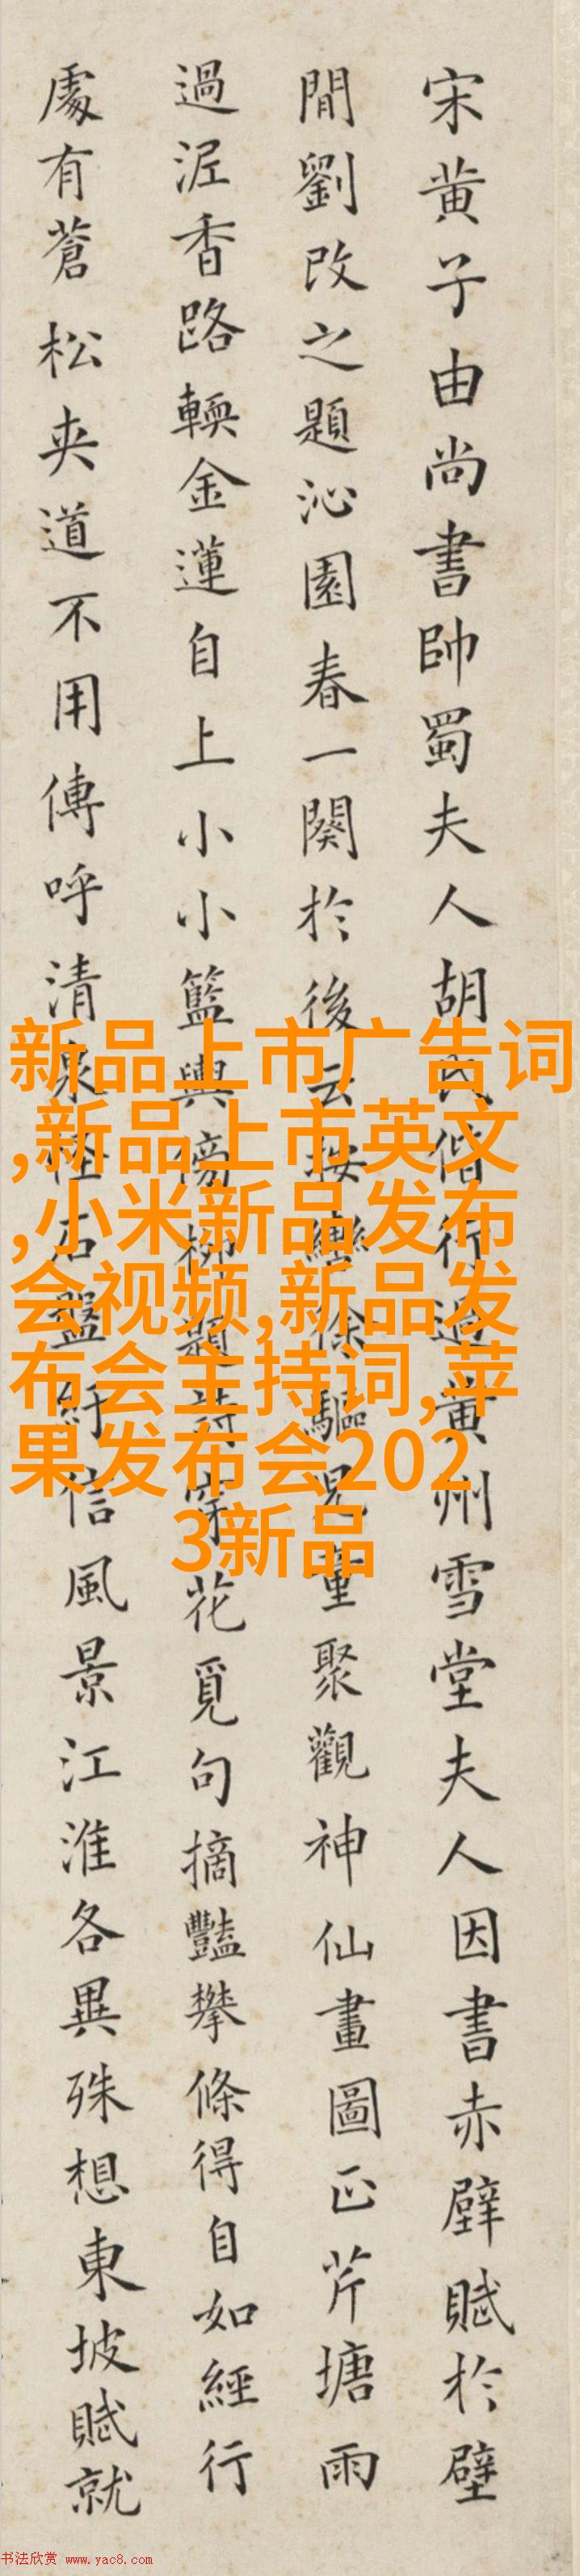 宋黄子由尚書帥蜀夫人胡氏偕行過黄州雪堂夫人因書赤壁賦於壁
間劉改之題沁園春一闋於後云按轡徐驅兒童聚觀神仙畫圖正芹塘雨
過泥香路輭金蓮自上小小籃輿傍柳題詩穿花覓句摘豔攀條得自如經行
處有蒼松夾道不用傳呼清泉怪石盤紆信風景江淮各異殊想東坡賦就
新品上市广告词
,新品上市英文
,小米新品发布
会视频,新品发
布会主持词,苹
果发布会202
3新品
书法欣赏 www.yac8.com